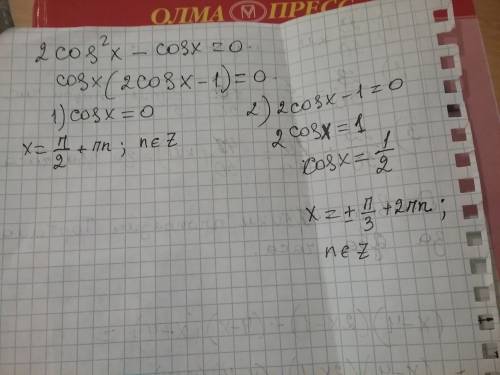 ОЛМА ПРЕСС
2cos²x - cosx = 0.
cosx(2cosx-1)=0.
1) cosx = 0
x = π/2 + πn; n∈Z
2) 2cosx - 1 = 0
2cosx = 1
cosx = 1/2
x = ± π/3 + 2πn;
n∈Z